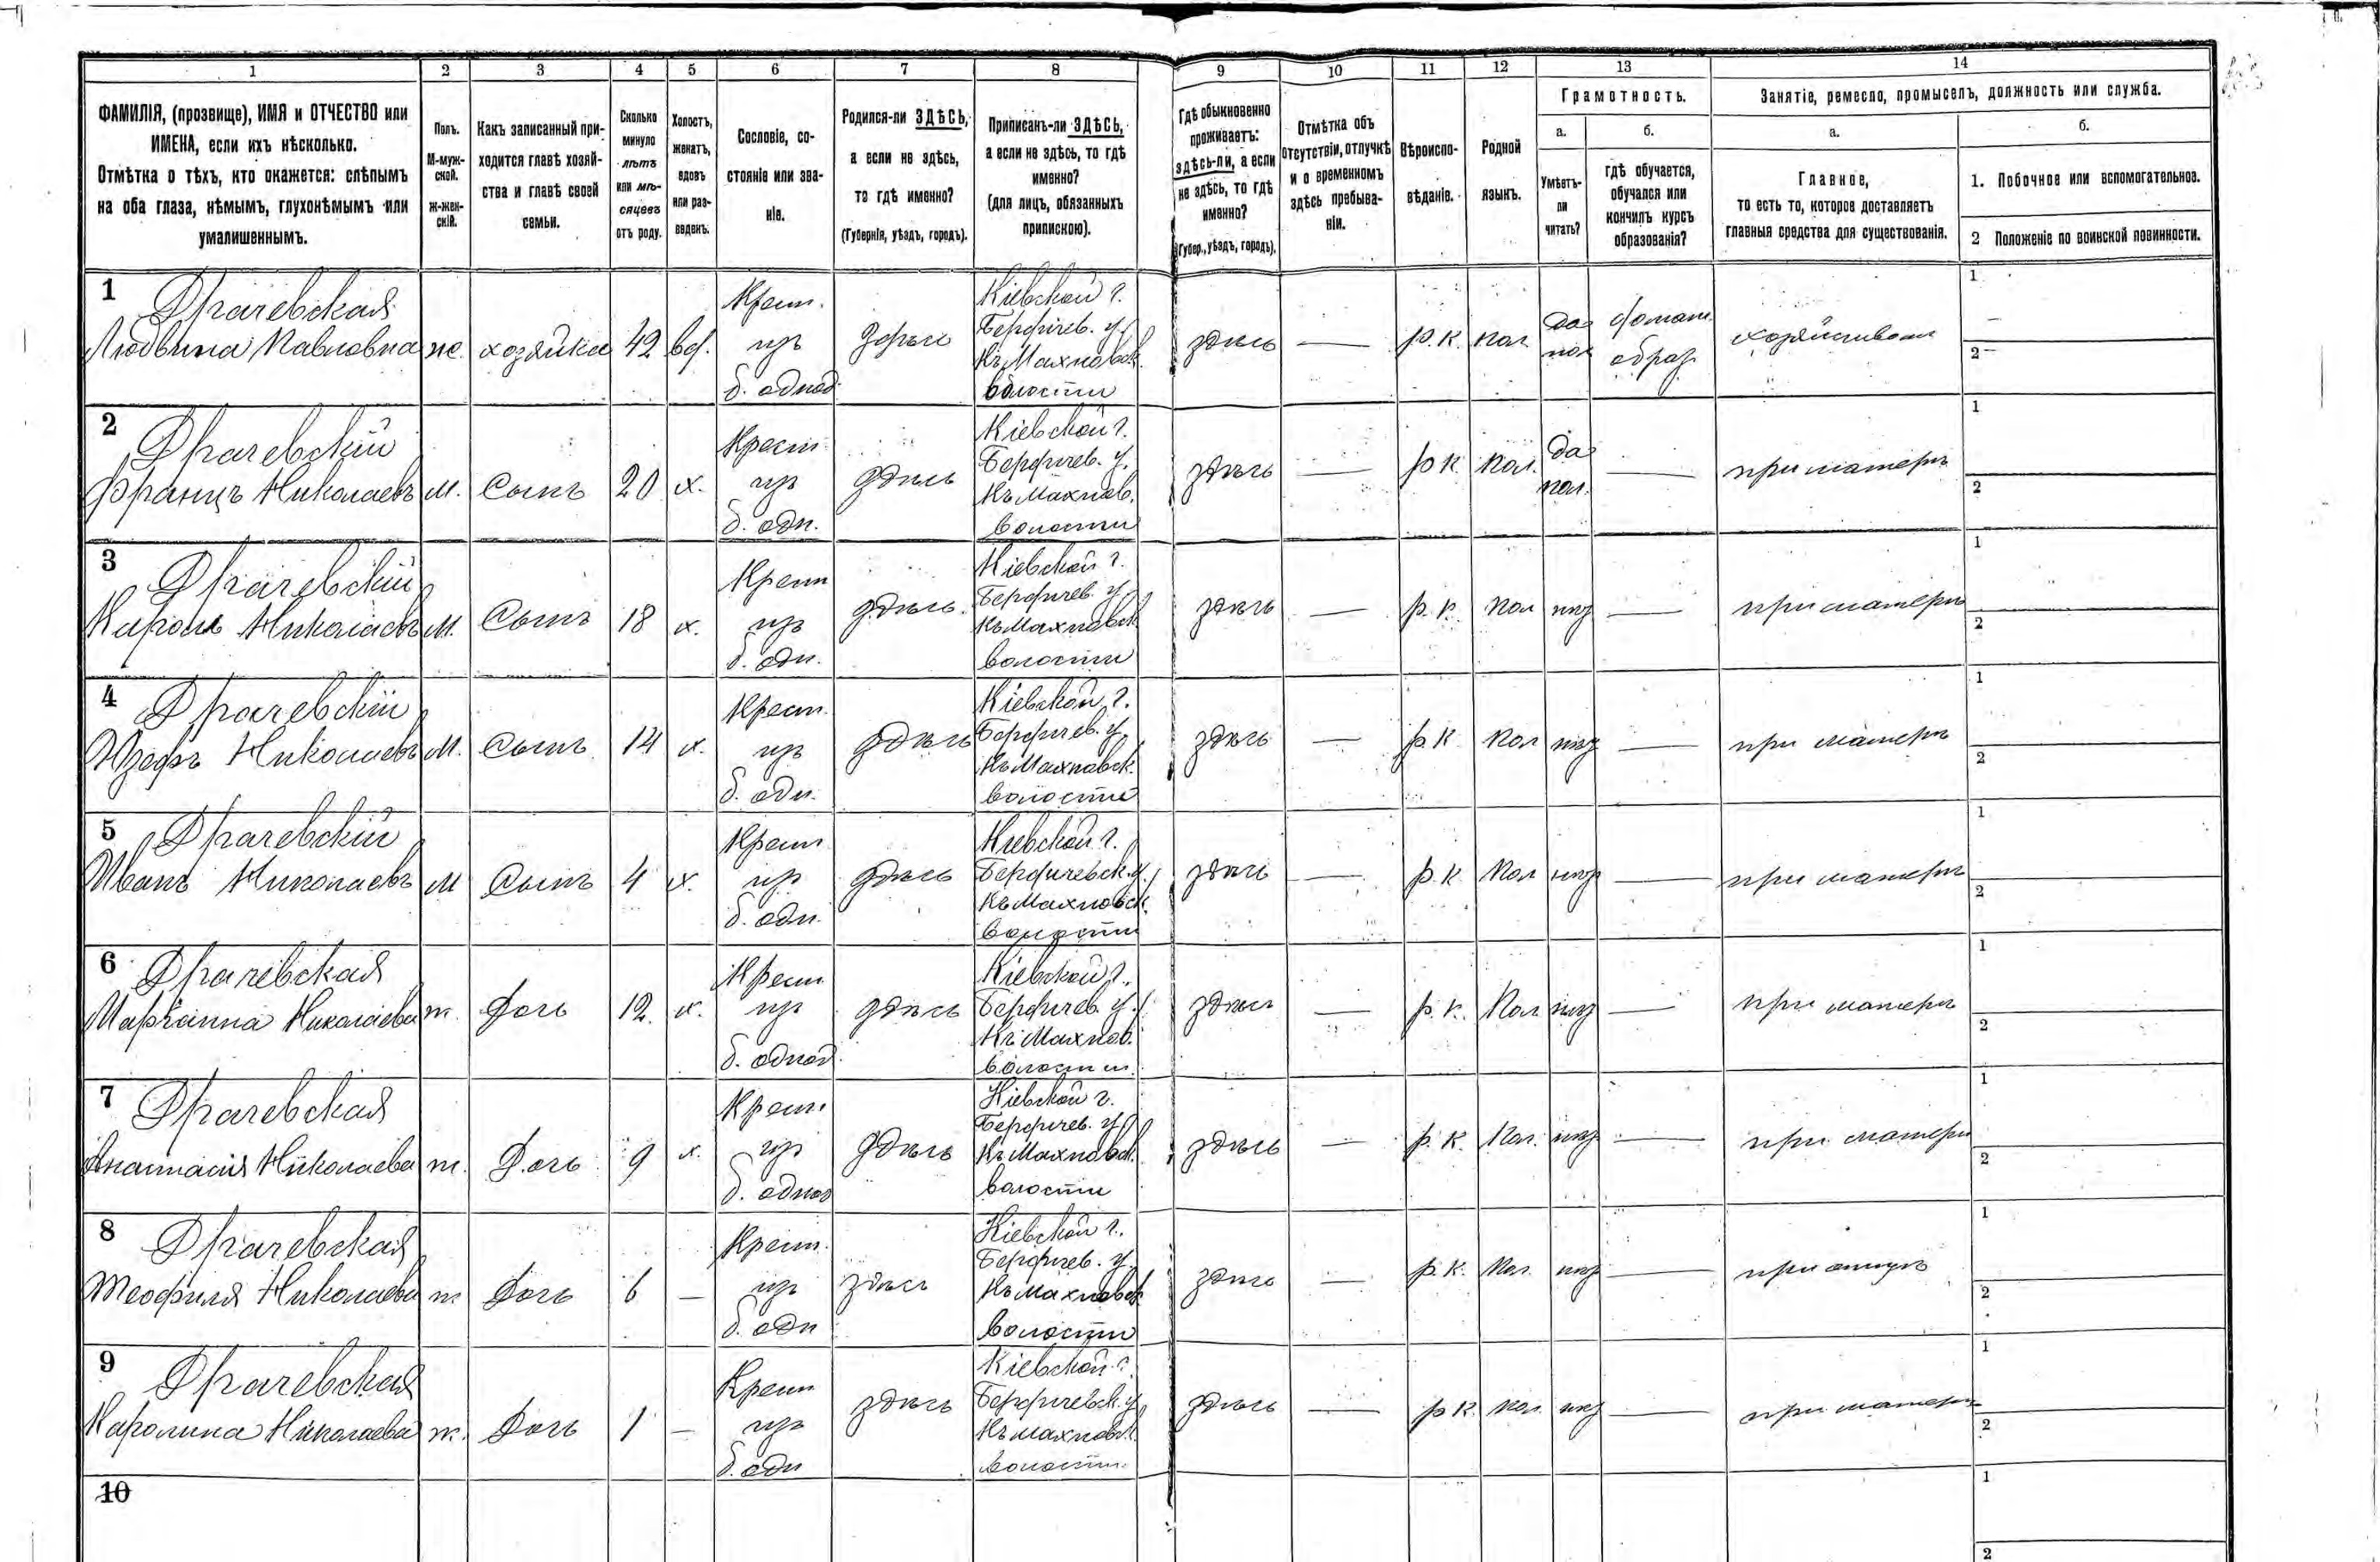 1 2 3 4 5 6 7 8 9 10 11 12 13 14
ФАМИЛІЯ, (прозвище), ИМЯ и ОТЧЕСТВО или
ИМЕНА, если ихъ нѣсколько.
Отмѣтка о тѣхъ, кто окажется: слѣпымъ
на оба глаза, нѣмымъ, глухонѣмымъ или
умалишеннымъ.
Полъ.
М-муж-
ской.
ж-жен-
скій.
Какъ записанный при-
ходится главѣ хозяй-
ства и главѣ своей
семьи.
Сколько
минуло
лѣтъ
или мѣ-
сяцевъ
отъ роду.
Холостъ,
женатъ,
вдовъ
или раз-
веденъ.
Сословіе, со-
стояніе или зва-
ніе.
Родился-ли ЗДѢСЬ,
а если не здѣсь,
то гдѣ именно?
(Губернія, уѣздъ, городъ).
Приписанъ-ли ЗДѢСЬ,
а если не здѣсь, то гдѣ
именно?
(для лицъ, обязанныхъ
припискою).
Гдѣ обыкновенно
проживаетъ:
здѣсь-ли, а если
не здѣсь, то гдѣ
именно?
(Губер., уѣздъ, городъ).
Отмѣтка объ
отсутствіи, отлучкѣ
и о временномъ
здѣсь пребыва-
ніи.
Вѣроиспо-
вѣданіе.
Родной
языкъ.
Грамотность.
а.
Умѣетъ-
ли
читать?
б.
гдѣ обучается,
обучался или
кончилъ курсъ
образованія?
Занятіе, ремесло, промыселъ, должность или служба.
а.
Главное,
то есть то, которое доставляетъ
главныя средства для существованія.
б.
1. Побочное или вспомогательное.
2 Положеніе по воинской повинности.
1
Драчевская
Людвина Павловна
же.
хозяйка
42
вд.
Крест.
изъ
б. однод.
здѣсь
Кіевской г.
Бердичев. у.
Къ Махновск.
волости
здѣсь
—
р. к.
пол
да
пол
домаш.
образ.
1 —
2 —
2
Драчевскій
Францъ Николаевъ
м.
Сынъ
20
х.
Крест.
изъ
б. одн.
здѣсь
Кіевской г.
Бердичев. у.
Къ Махнов.
волости
здѣсь
—
р к.
пол.
да
пол.
—
при матери
1
2
3
Драчевскій
Кароль Николаевъ
м.
Сынъ
18
х.
Крест
изъ
б. одн.
здѣсь.
Кіевской г.
Бердичев. у.
Къ Махновск
волости
здѣсь
—
р. к.
пол
нѣт
—
при матери
1
2
4
Драчевскій
Юзефъ Николаевъ
м.
Сынъ
14
х.
Крест.
изъ
б. одн.
здѣсь
Кіевской г.
Бердичев. у.
Къ Махновск.
волости
здѣсь
—
р. к
пол
нѣт
—
при матери
1
2
5
Драчевскій
Иванъ Николаевъ
м
Сынъ
4
х.
Крест
изъ
б. одн.
здѣсь
Кіевской г.
Бердичевск. у.
Къ Махновск.
волости
здѣсь
—
р. к.
пол
нѣт
—
при матери
1
2
6
Драчевская
Маріанна Николаева
ж.
Дочь
12.
х.
Крест
изъ
б. однод.
здѣсь
Кіевской г.
Бердичев. у.
Къ Махнов.
волости.
здѣсь
—
р. к.
пол
нѣт
—
при матери
1
2
7
Драчевская
Анастасія Николаева
ж.
Дочь
9
х.
Крест.
изъ
б. однод
здѣсь
Кіевской г.
Бердичев. у.
Къ Махновск.
волости
здѣсь
—
р. к.
пол.
нѣт
—
при матери
1
2
8
Драчевская
Теофиля Николаева
ж.
Дочь
6
—
Крест.
изъ
б. одн
здѣсь
Кіевской г.
Бердичев. у.
Къ Махновск
волости
здѣсь
—
р. к.
пол.
нѣт
—
при
1
2
9
Драчевская
Каролина Николаева
ж.
Дочь
1
—
Крест
изъ
б. одн
здѣсь
Кіевской г.
Бердичевск. у.
Къ Махновск.
волости.
здѣсь
—
р к.
пол.
нѣт
—
при матери
1
2
10
1
2